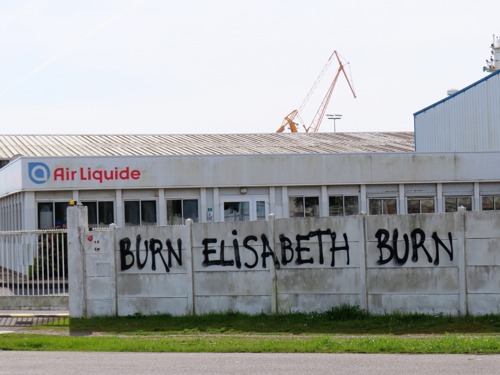 Air Liquide
BURN ELISABETH BURN